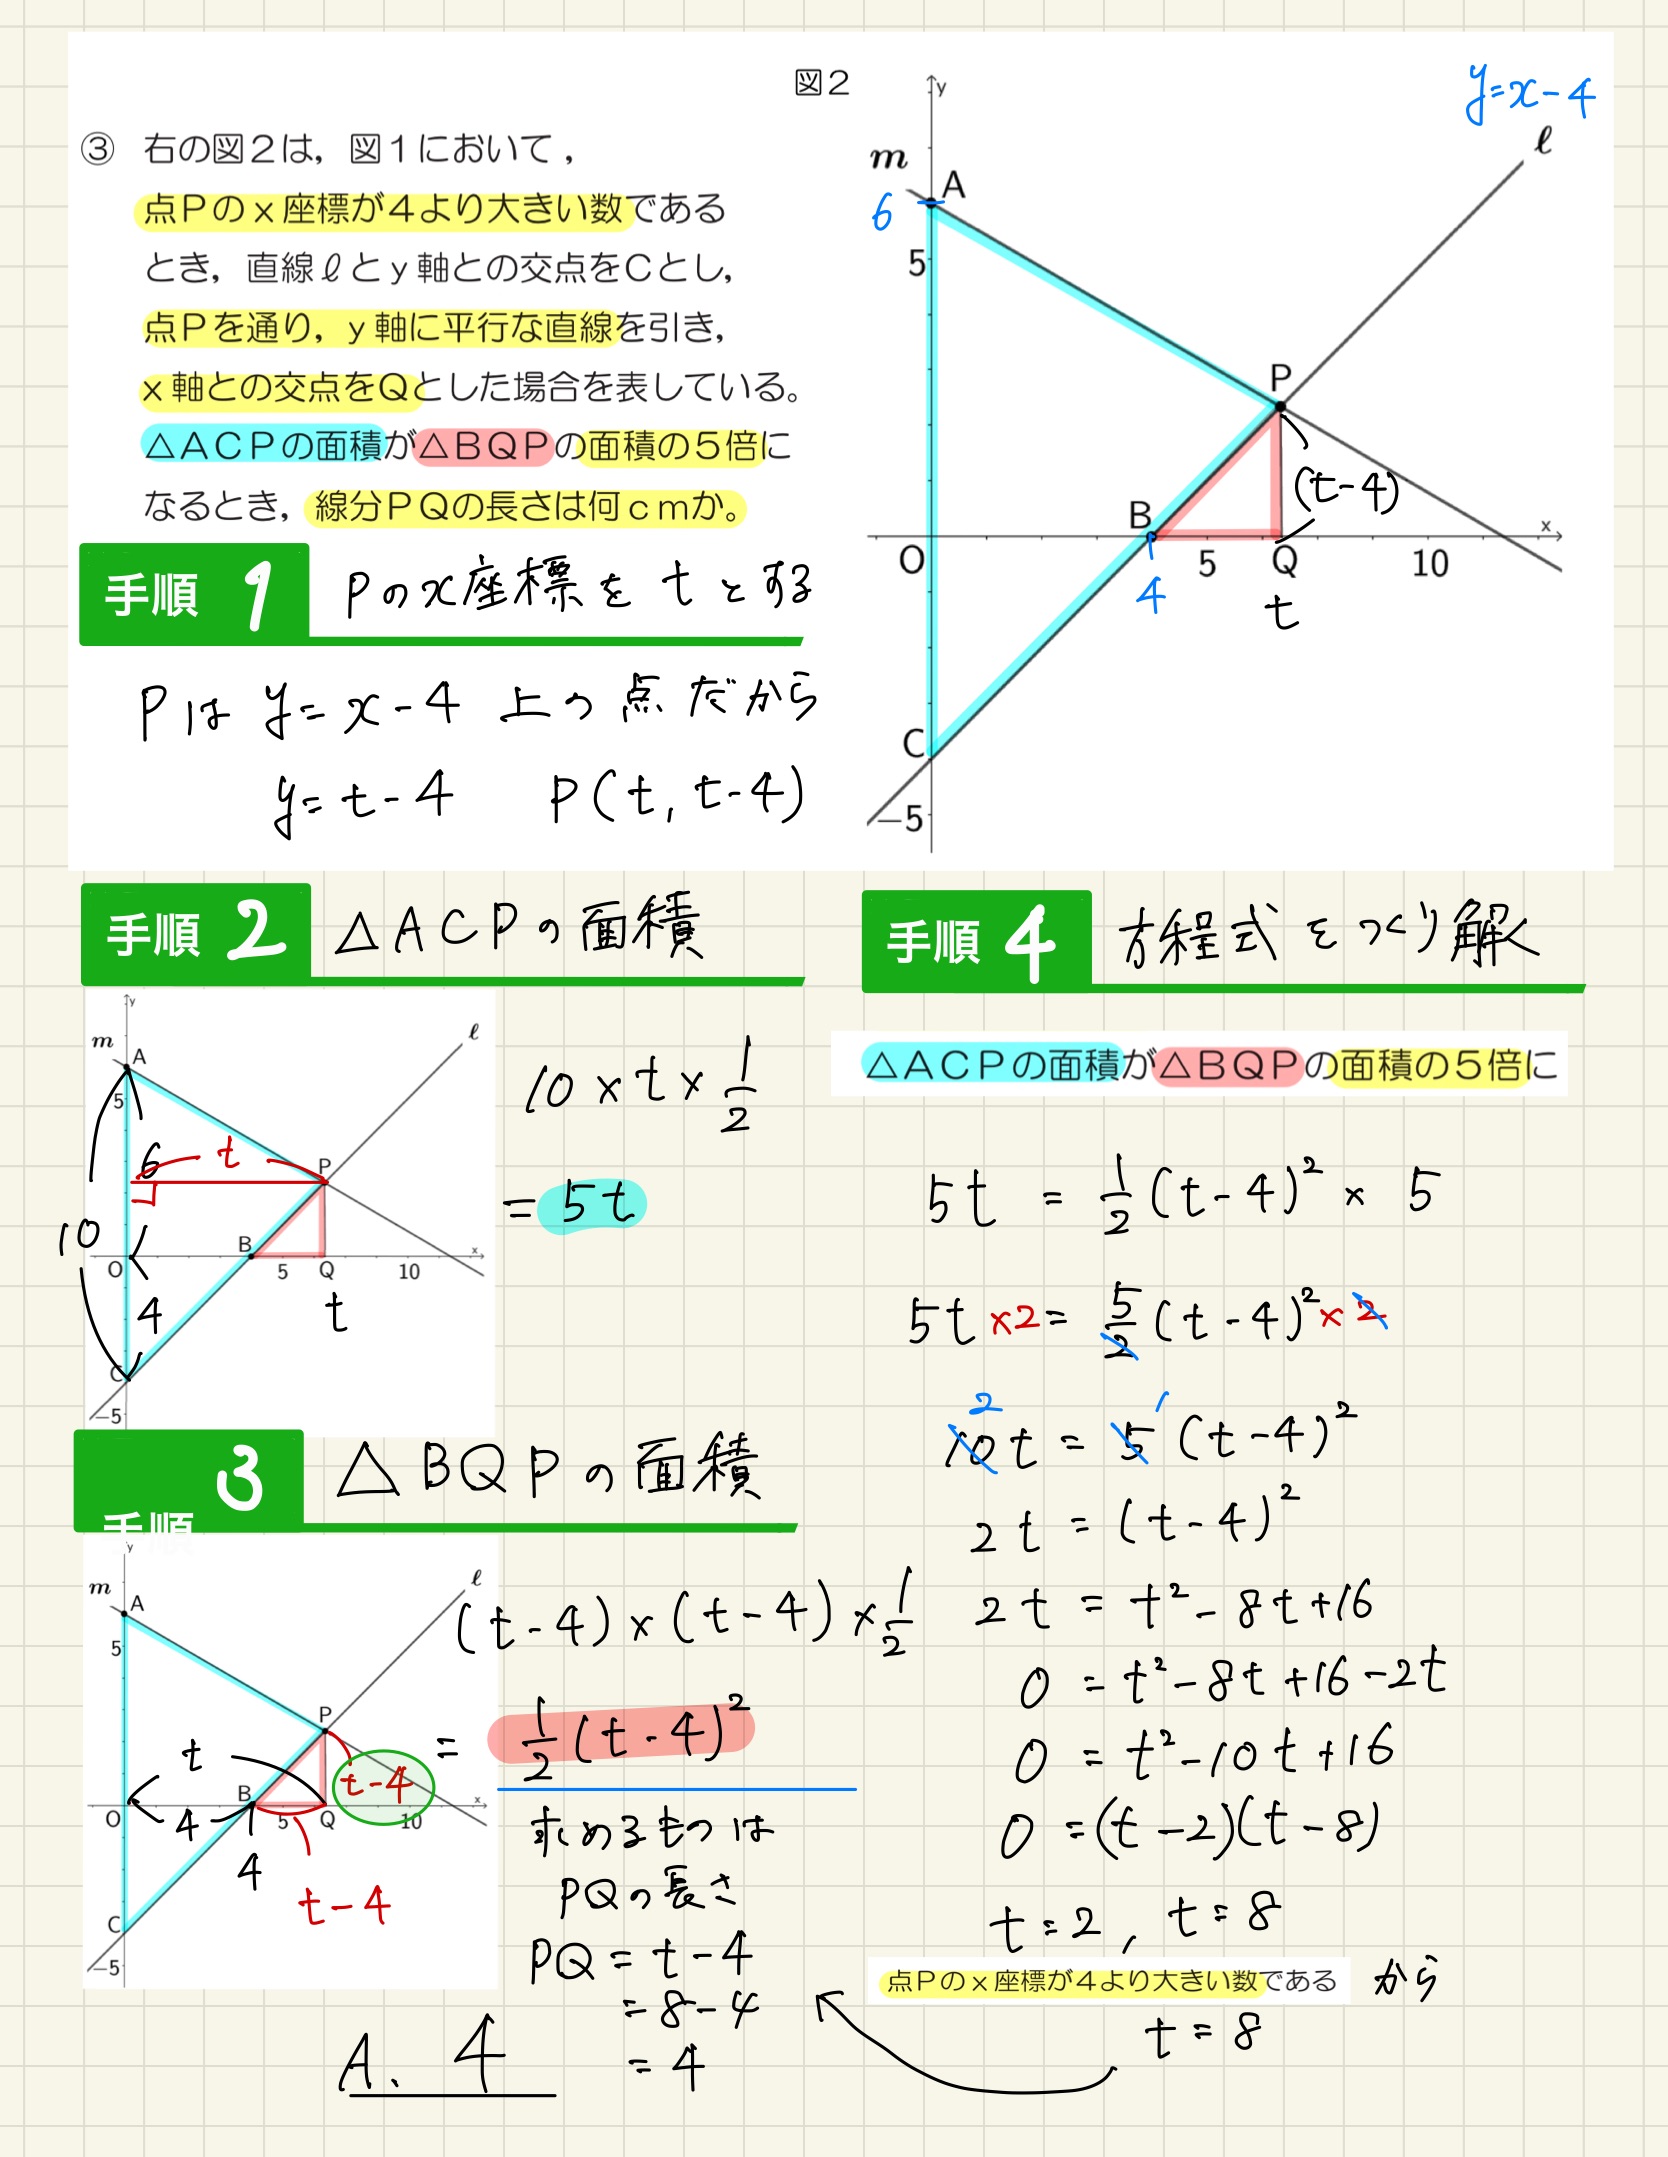 図２
y=x-4
③ 右の図２は，図１において，
点Ｐのｘ座標が４より大きい数である
とき，直線ℓとｙ軸との交点をＣとし，
点Ｐを通り，ｙ軸に平行な直線を引き，
ｘ軸との交点をＱとした場合を表している。
△ＡＣＰの面積が△ＢＱＰの面積の５倍に
なるとき，線分ＰＱの長さは何ｃｍか。
y
m
A
ℓ
6
5
P
(t-4)
B
x
O
5
Q
10
4
t
C
-5
手順 1 Pのx座標をtとする
Pは y=x-4 上の点だから
y=t-4 P(t, t-4)
手順 2 △ACPの面積
y
m
A
ℓ
5
6
t
P
10
B
x
O
5
Q
10
4
t
C
-5
10×t×1/2
=5t
手順 3 △BQPの面積
y
m
A
ℓ
5
P
t
t-4
B
x
O
4
5
Q
10
4
t-4
C
-5
(t-4)×(t-4)×1/2
= 1/2(t-4)²
求めるものは
PQの長さ
PQ=t-4
=8-4
=4
A. 4
手順 4 方程式をつくり解く
△ＡＣＰの面積が△ＢＱＰの面積の５倍に
5t = 1/2(t-4)² × 5
5t×2= 5/2(t-4)²×2
2 1
10t = 5(t-4)²
2t = (t-4)²
2t = t²-8t+16
0 = t²-8t+16-2t
0 = t²-10t+16
0 =(t-2)(t-8)
t=2, t=8
点Ｐのｘ座標が４より大きい数である から
t=8